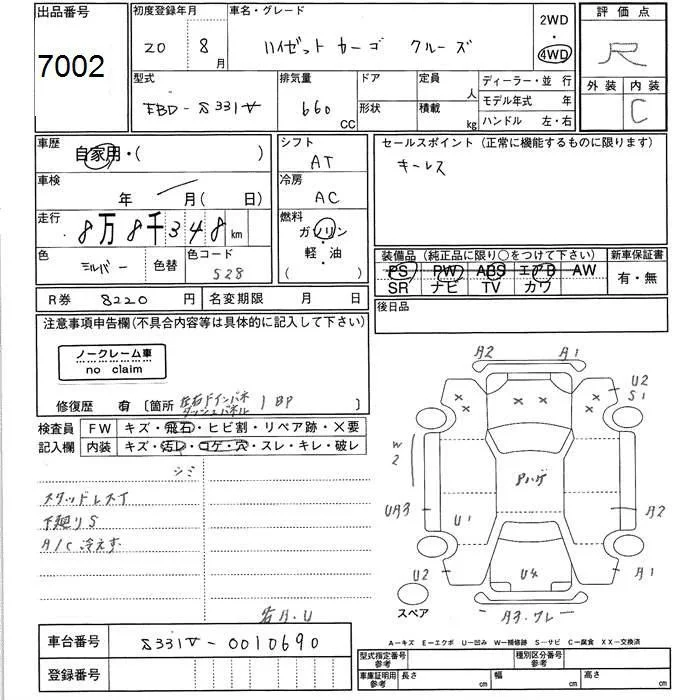 出品番号
7002
初度登録年月 20 8月
車名・グレード ハイゼット カーゴ クルーズ
2WD・4WD
評価点 R
外装 内装 C
型式 EBD-S331V
排気量 660 CC
ドア
形状
定員 人
積載 kg
ディーラー・並行
モデル年式 年
ハンドル 左・右
車歴 自家用・( )
シフト AT
セールスポイント (正常に機能するものに限ります)
キーレス
車検 年 月( 日)
冷房 AC
走行 8万8千348km
燃料 ガソリン
軽・油
( )
色 シルバー 色替
色コード S28
装備品 (純正品に限り○をつけて下さい) 新車保証書
PS PW ABS エアB AW 有・無
SR ナビ TV カワ
R券 8220円 名変期限 月 日
後日品
注意事項申告欄(不具合内容等は具体的に記入して下さい)
ノークレーム車
no claim
修復歴 有 [箇所 左右ドインパネ 1BP ]
ダッシュパネル
検査員 FW キズ・飛石・ヒビ割・リペア跡・×要
記入欄 内装 キズ・汚レ・コゲ・穴・スレ・キレ・破レ
シミ
スタッドレスT
下廻りS
A/C 冷えず
A2 A1
U2
S1
W
2
Pハゲ
UA3 U1 A2
U2 U4 A1
スペア
A-キズ E-エクボ U-凹み W-補修跡 S-サビ C-腐食 XX-交換済
車台番号 S331V-0010690
登録番号
型式指定番号 参考 種別区分番号 参考
車庫証明用 参考 長さ cm 幅 cm 高さ cm